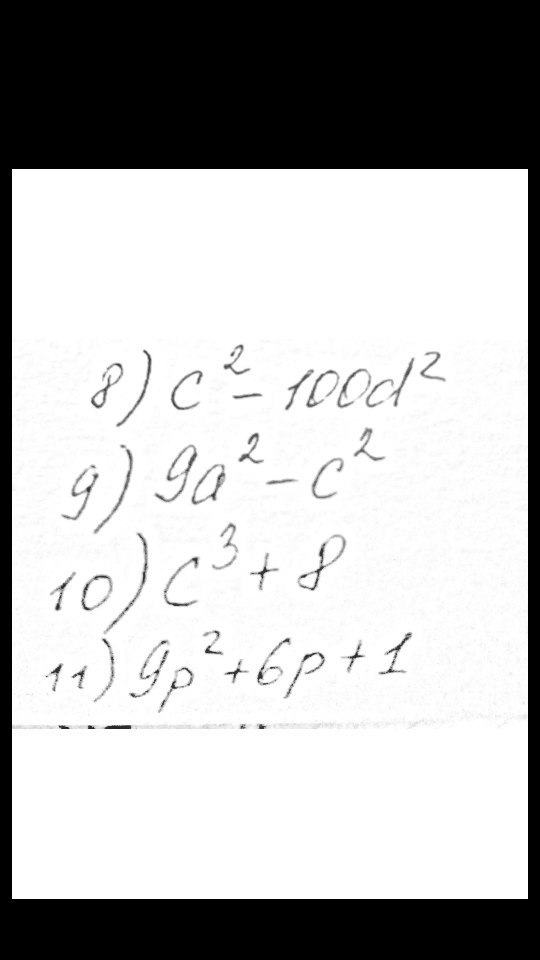 8) c² - 100d²
9) 9a² - c²
10) c³ + 8
11) 9p² + 6p + 1